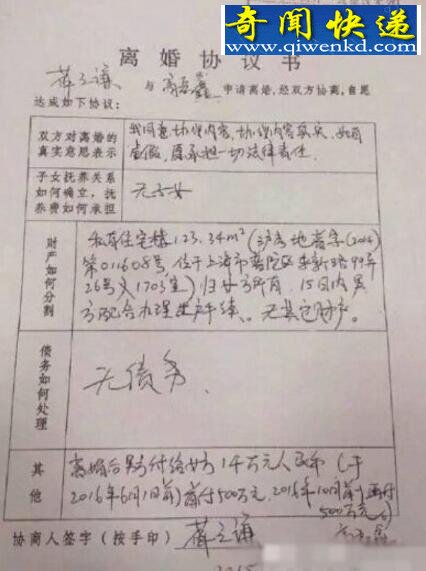 奇闻快递
www.qiwenkd.com
离婚协议书
薛之谦 与 高磊鑫 申请离婚,经双方协商,自愿
达成如下协议:
双方对离婚的
真实意思表示
我同意协议内容,协议内容真实,如有
虚假,愿承担一切法律责任.
子女抚养关系
如何确立,抚
养费如何承担
无子女
财产如何分割
私有住宅楼123.34m²(沪房地普字(2004)
第011608号,位于上海市普陀区 99弄
26号 1703室)归女方所有,15日内男
方配合办理过户手续。无其它财产。
债务如何处理
无债务.
其他
离婚后男方付给女方1千万元人民币(于
2016年6月1日前)首付500万元,2016年10月前再付
500万元
协商人签字(按手印) 薛之谦 高磊鑫